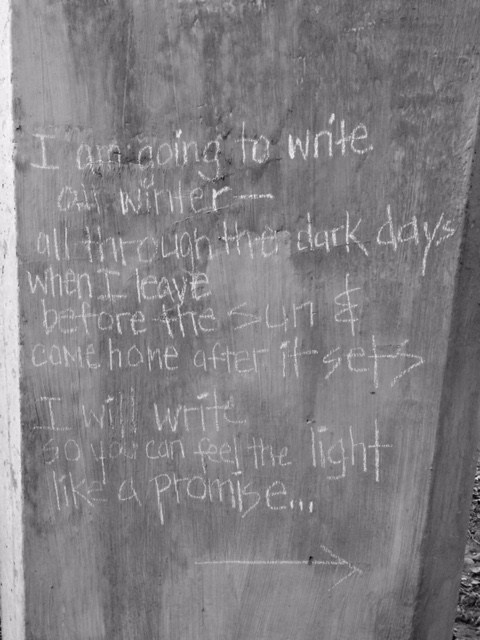 I am going to write
all winter—
all through the dark days
when I leave
before the sun &
come home after it sets
I will write
so you can feel the light
like a promise...